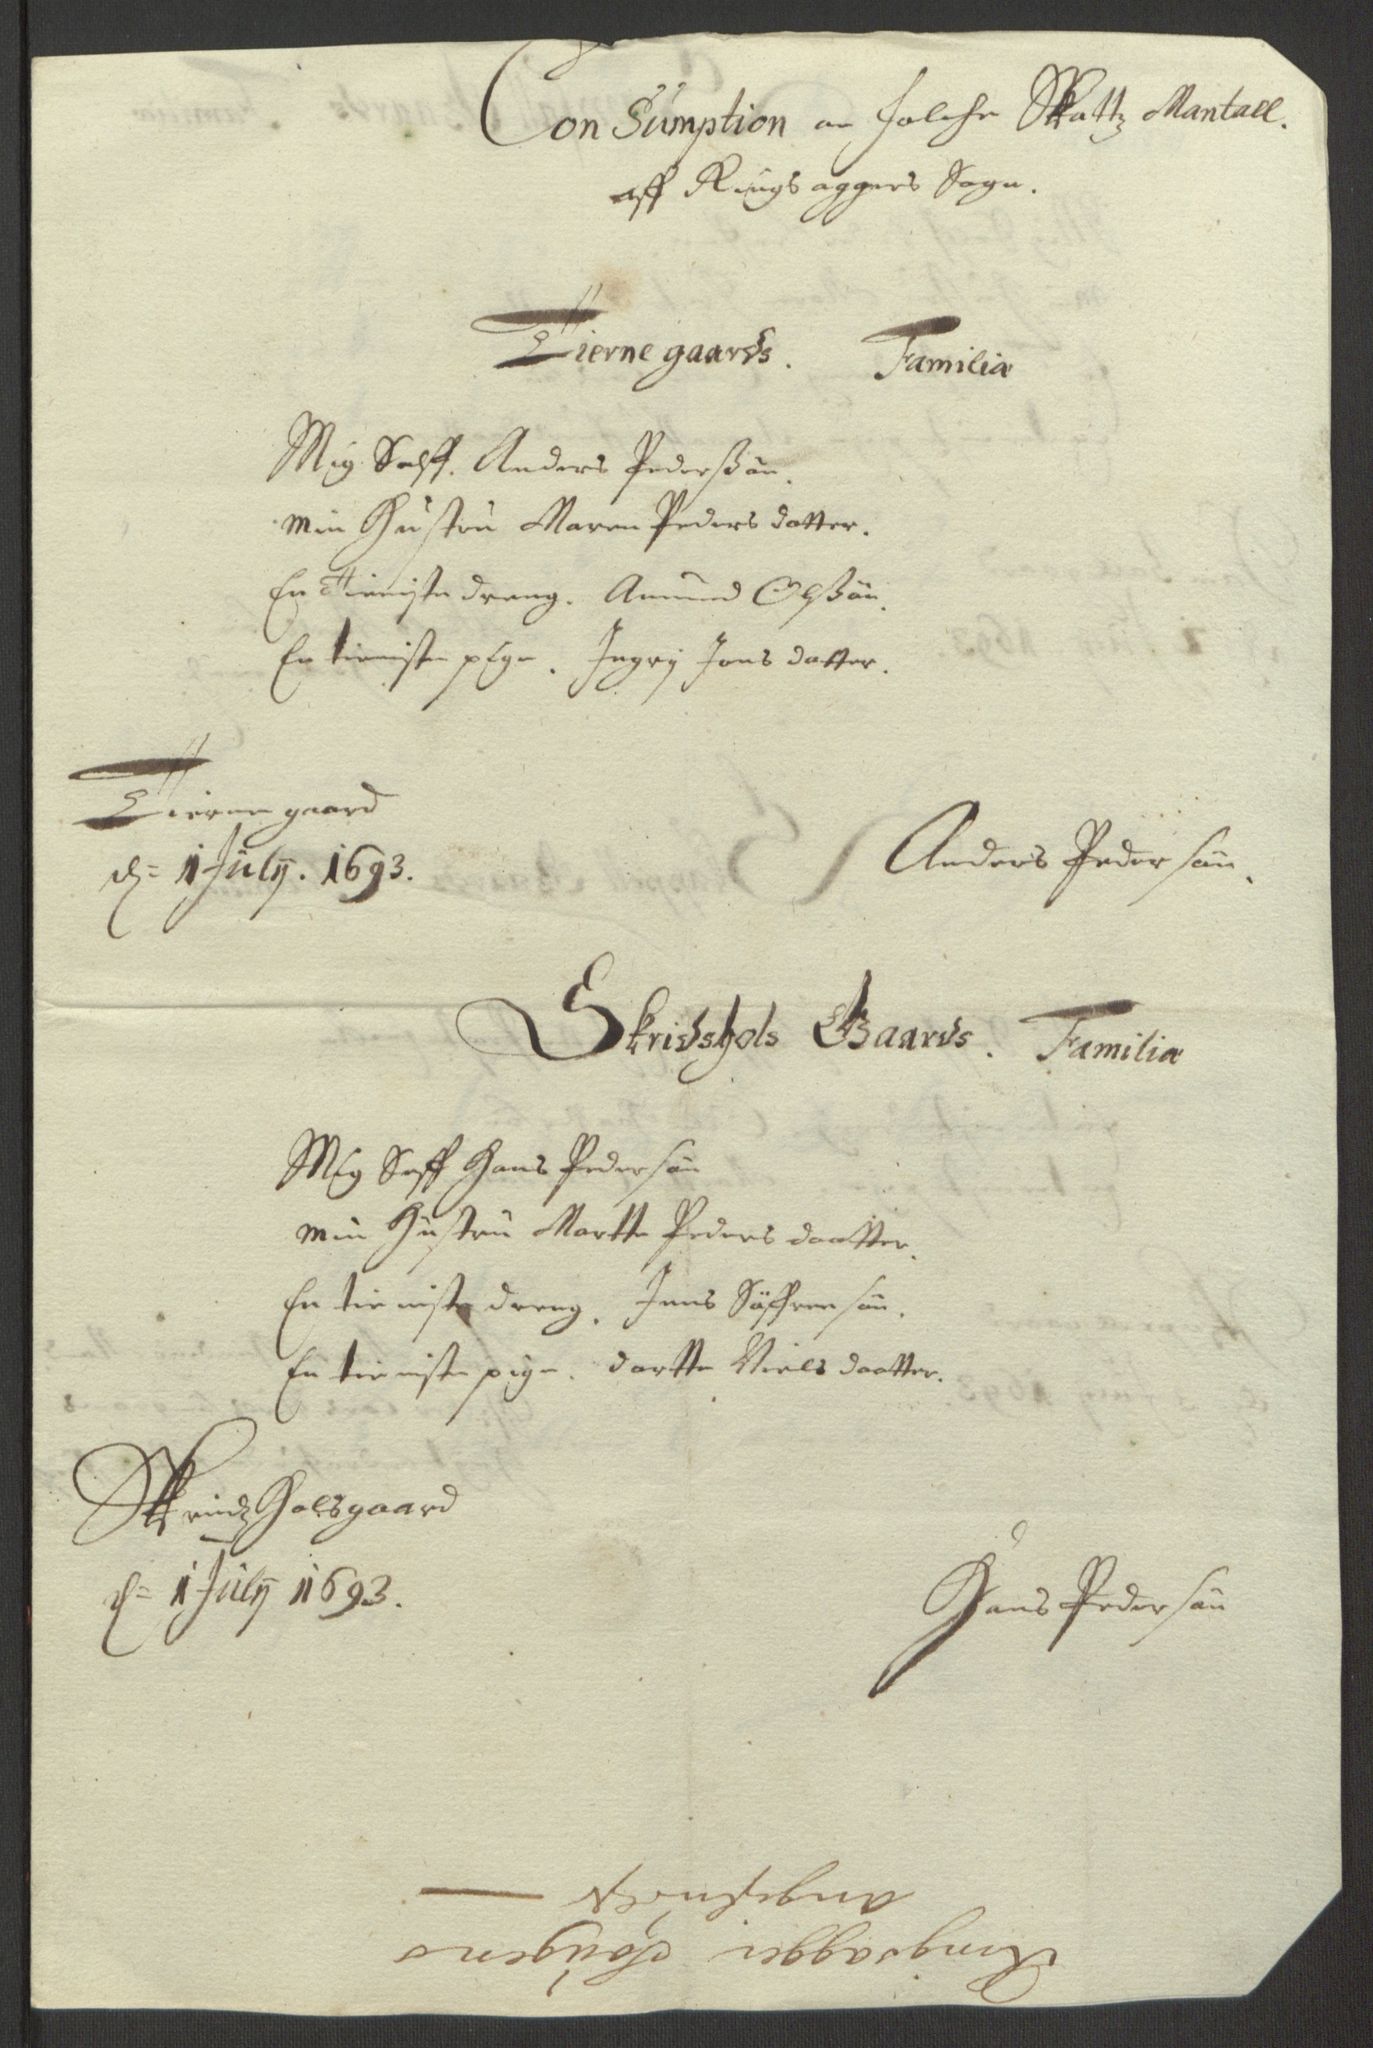 Con Sumption oc folche Skattz Mantall.
aff Ringsaggers Sogn.
Tiernegaards. Familia
Mig Selff. Anders Pederßön.
min Hustru Maren Peders datter.
En Tieniste dreng. Amund Olßön.
En tieniste pige. Ingrij Jons datter.
Tiernegaard
d= 1 Julij. 1693.
Anders Pedersön.
Skridshols Gaards. Familia
Mig Selff Hans Pedersön
min Hustru Martte Peders daatter.
En tieniste dreng. Jens Söffrensön.
En tieniste pige. dortte Niels daatter.
Skridz Holsgaard
d= 1 Julij 1693.
Hans Pedersön
Ringsagger